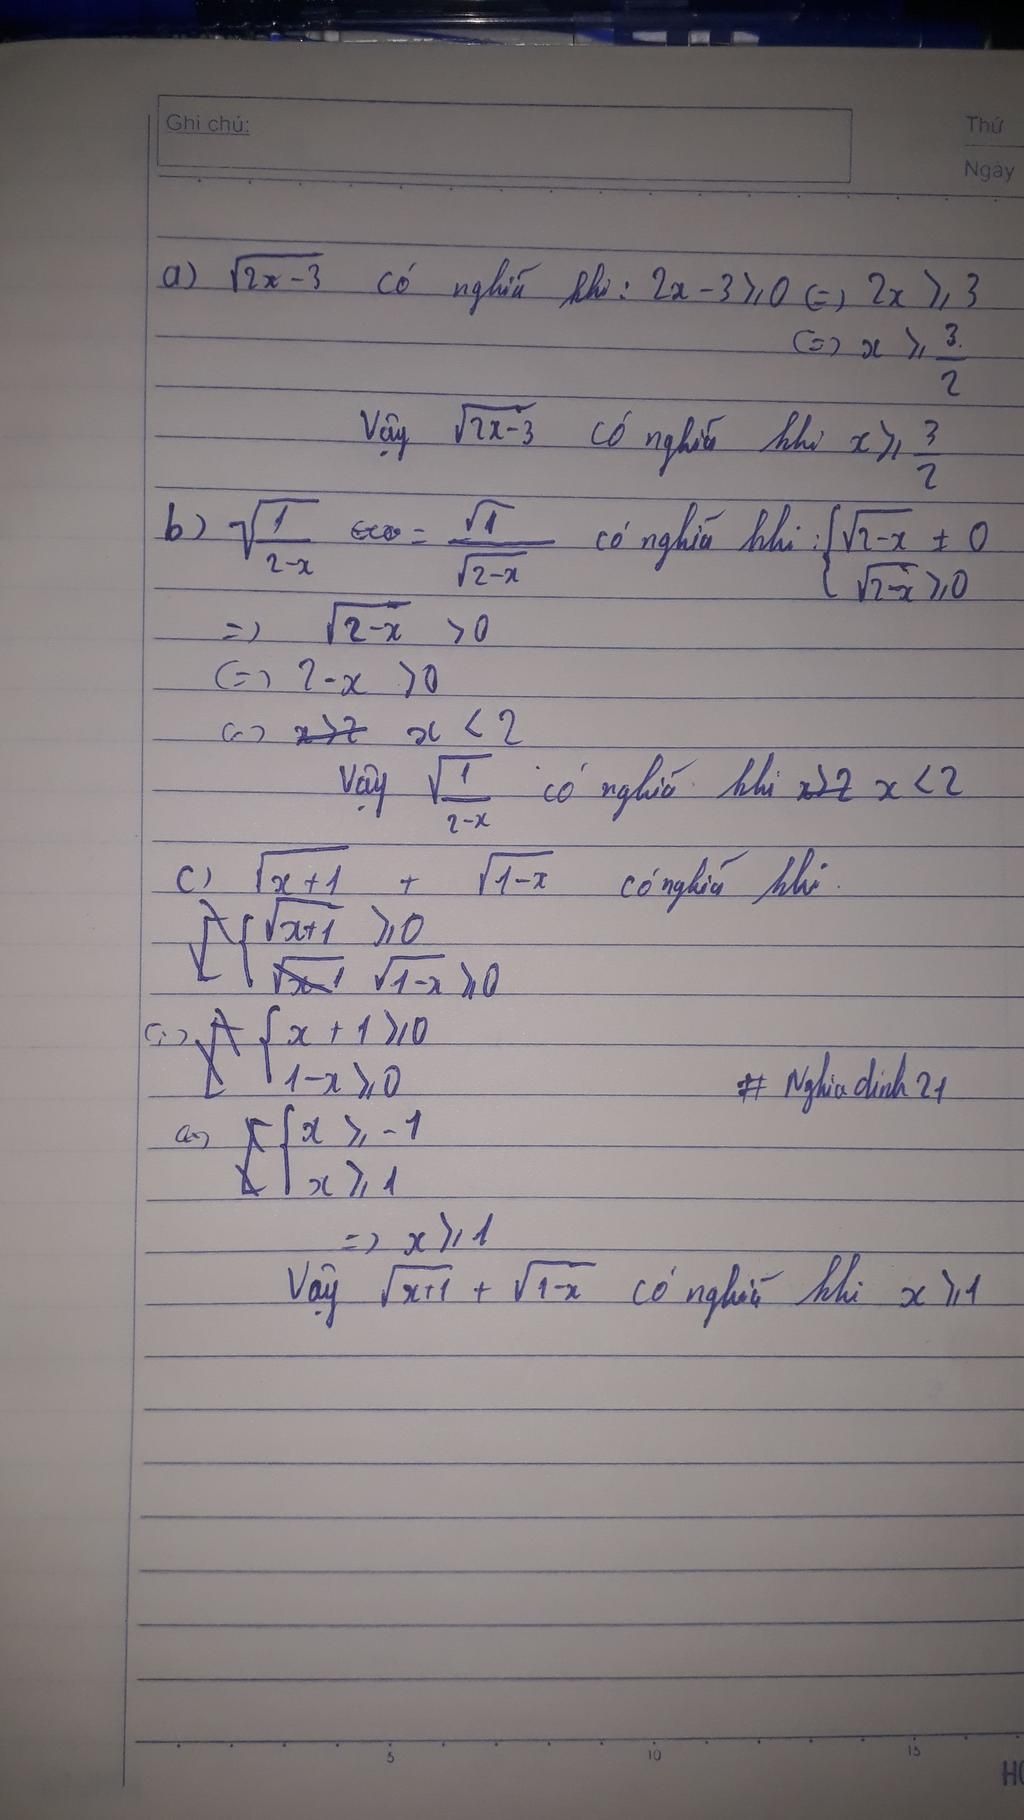 Ghi chú:
Thứ
Ngày
a) √(2x-3) có nghĩa khi: 2x-3 ≥ 0 (=) 2x ≥ 3
(=) x ≥ 3/2
Vậy √(2x-3) có nghĩa khi x ≥ 3/2
b) √(1/(2-x)) = √1/√(2-x) có nghĩa khi: { √(2-x) ± 0
√(2-x) ≥ 0
=) √(2-x) > 0
(=) 2-x > 0
(=) x>2 x < 2
Vậy √(1/(2-x)) có nghĩa khi x>2 x < 2
c) √(x+1) + √(1-x) có nghĩa khi
{ √(x+1) ≥ 0
√(x-1) √(1-x) ≥ 0
(=) { x + 1 ≥ 0
1-x ≥ 0
# Nghiadinh21
(=) { x ≥ -1
x ≥ 1
=) x ≥ 1
Vậy √(x+1) + √(1-x) có nghĩa khi x ≥ 1
5 10 15